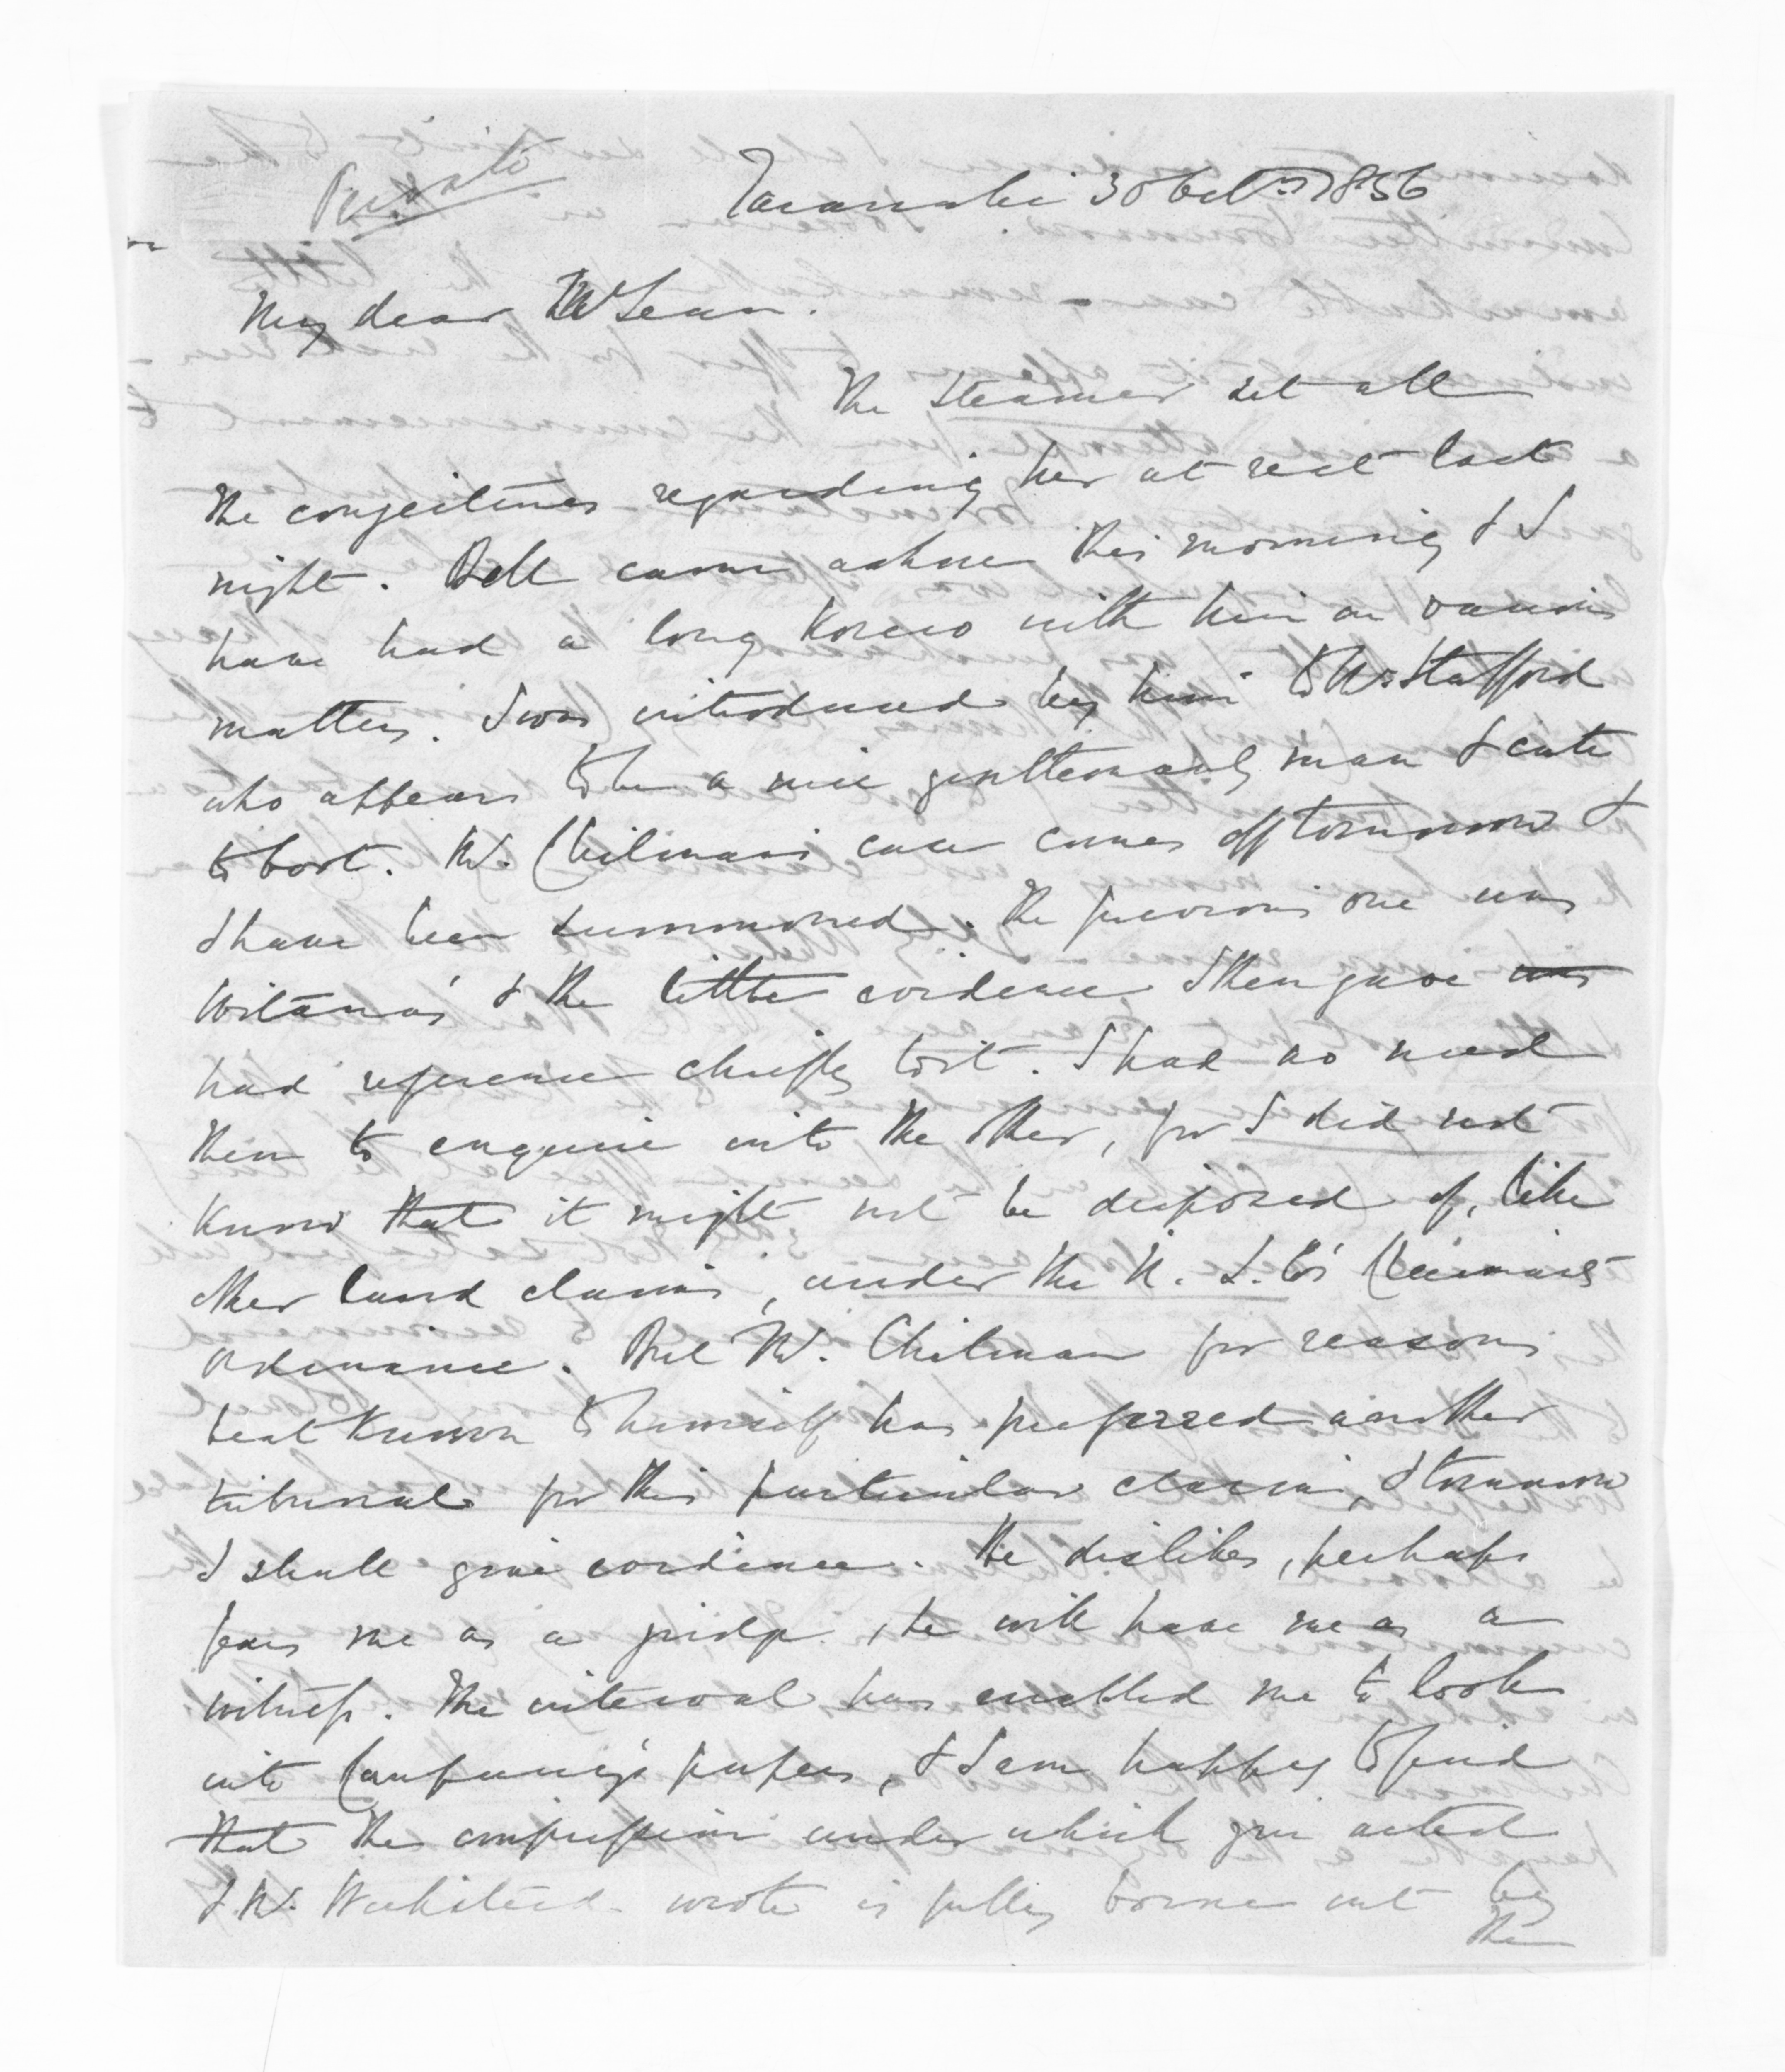 Private
Taranaki 30 Octr. 1856
My dear McLean.
The steamer set all
the conjectures regarding her at rest last
night. Bell came ashore this morning & I
have had a long Korero with him on various
matters. I was introduced by him to Mr. Stafford
who appears to be a nice gentlemanly man & cute
to boot. Mr. Chilman's case comes off tomorrow &
I have been summoned. The previous one was
Witana's & the little evidence I then gave was
had reference chiefly to it. I had no need
then to enquire into the other, for I did not
know that it might not be disposed of, like
other land claims, under the N. Z. Co's Claimants
Ordinance. But Mr. Chilman for reasons
best known to himself has preferred another
tribunal for this particular claim, & tomorrow
I shall give evidence. He dislikes, perhaps
fears me as a judge, he will have me as a
witness. The interval has enabled me to look
into Company's papers, & I am happy to find
that the impression under which you acted
& Mr. wrote is fully borne out by
the